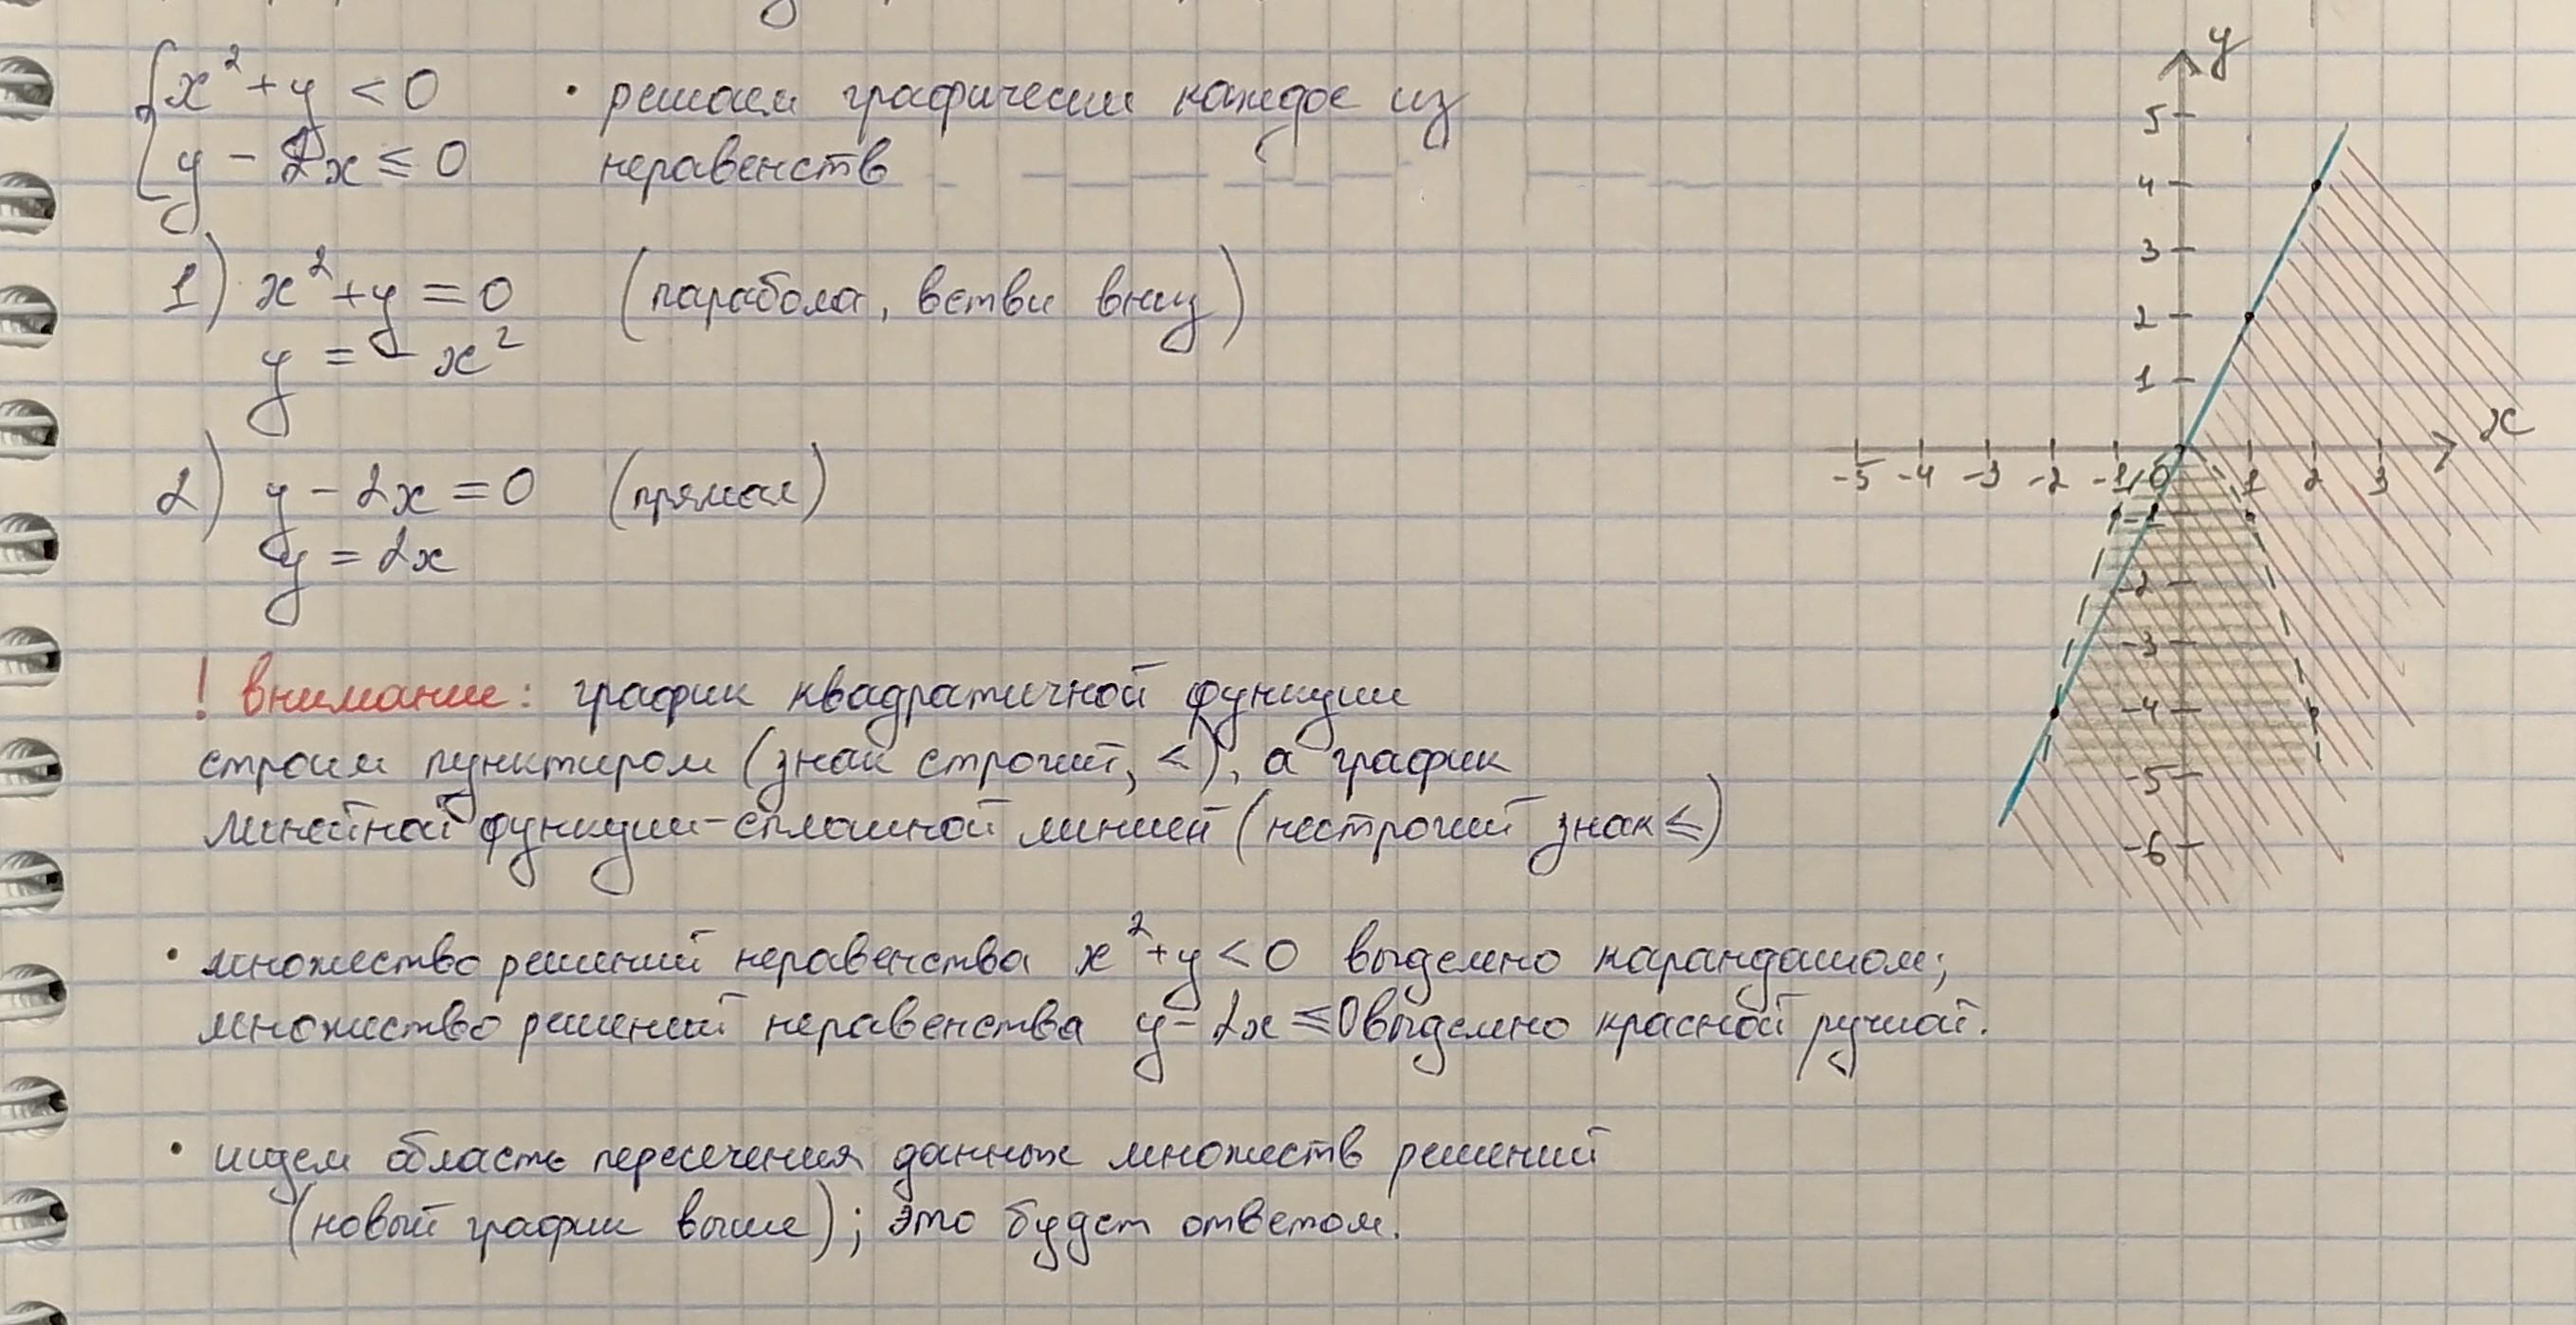 { x² + y < 0
y - 2x ≤ 0
• решаем графически каждое из
неравенств
1) x² + y = 0 (парабола, ветви вниз)
y = - x²
2) y - 2x = 0 (прямая)
y = 2x
! внимание: график квадратичной функции
строим пунктиром (знак строгий, <), а график
линейной функции - сплошной линией (нестрогий знак ≤)
• множество решений неравенства x² + y < 0 выделено карандашом;
множество решений неравенства y - 2x ≤ 0 выделено красной ручкой.
• ищем область пересечения данных множеств решений
(новый график выше); это будет ответом.
y
5
4
3
2
1
x
-5 -4 -3 -2 -1 0 1 2 3
-1
-2
-3
-4
-5
-6